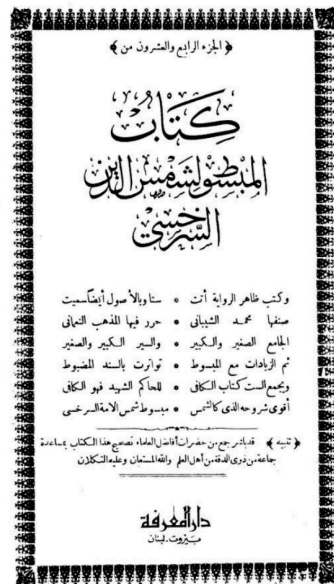 ﴿ الجزء الرابع والعشرون من ﴾
كتاب
المبسوط لشمس الدين
السرخسي
وكتب ظاهر الرواية أتت * ستا وبالأصول أيضا سميت
صنفها محمد الشيباني * حرر فيها المذهب النعماني
الجامع الصغير والكبير * والسير الكبير والصغير
ثم الزيادات مع المبسوط * تواترت بالسند المضبوط
ويجمع الست كتاب الكافي * للحاكم الشهيد فهو الكافي
أقوى شروحه الذي كالشمس * مبسوط شمس الامة السرخسي
﴿ تنبيه ﴾ قد باشر جمع من حضرات أفاضل العلماء تصحيح هذا الكتاب بمساعدة
جماعة من ذوي الدقة من أهل العلم والله المستعان وعليه التكلان
دار المعرفة
بيروت. لبنان